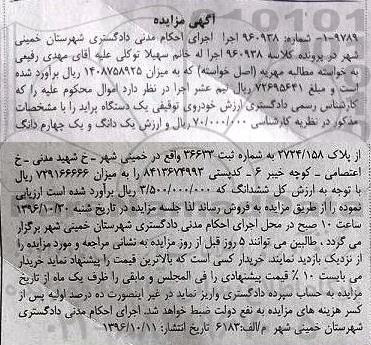 آگهی مزایده
۹۷۸۹-۱- شماره: ۹۶۰۹۳۸ اجرا اجرای احکام مدنی دادگستری شهرستان خمینی
شهر در پرونده کلاسه ۹۶۰۹۳۸ اجرا له خانم سهیلا توکلی علیه آقای مهدی رفیعی
به خواسته مطالبه مهریه (اصل خواسته) که به میزان ۱۴۰۸۷۵۸۹۲۵ ریال برآورد شده
است و مبلغ ۷۲۶۹۵۶۴۱ ریال نیم عشر اجرا در نظر دارد اموال محکوم علیه را که
کارشناس رسمی دادگستری ارزش خودروی توقیفی یک دستگاه پراید را با مشخصات
مذکور در نظریه کارشناسی ۷۰/۰۰۰/۰۰۰ ریال و ارزش یک دانگ و یک چهارم دانگ
از پلاک ۲۷۲۴/۱۵۸ به شماره ثبت ۳۶۶۳۳ واقع در خمینی شهر - خ شهید مدنی - خ
اعتصامی - کوچه خیبر ۶ - کدپستی ۸۴۱۳۶۷۴۹۹۳ را به میزان ۷۲۹۱۶۶۶۶۶ ریال
با توجه به ارزش کل ششدانگ که ۳/۵۰۰/۰۰۰/۰۰۰ ریال برآورد شده است ارزیابی
نموده را از طریق مزایده به فروش رساند لذا جلسه مزایده در تاریخ شنبه ۱۳۹۶/۱۰/۳۰
ساعت ۱۰ صبح در محل اجرای احکام مدنی دادگستری شهرستان خمینی شهر برگزار
می گردد . طالبین می توانند ۵ روز قبل از روز مزایده به نشانی مراجعه و مورد مزایده را
از نزدیک بازدید نمایند. خریدار کسی است که بالاترین قیمت را پیشنهاد نماید خریدار
می بایست ۱۰ ٪ قیمت پیشنهادی را فی المجلس و مابقی را ظرف یک ماه از تاریخ
مزایده به حساب سپرده دادگستری واریز نماید در غیر اینصورت ده درصد اولیه پس از
کسر هزینه های مزایده به نفع دولت ضبط خواهد شد. اجرای احکام مدنی دادگستری
شهرستان خمینی شهر م/الف:۶۱۸۳ تاریخ انتشار: ۱۳۹۶/۱۰/۱۱